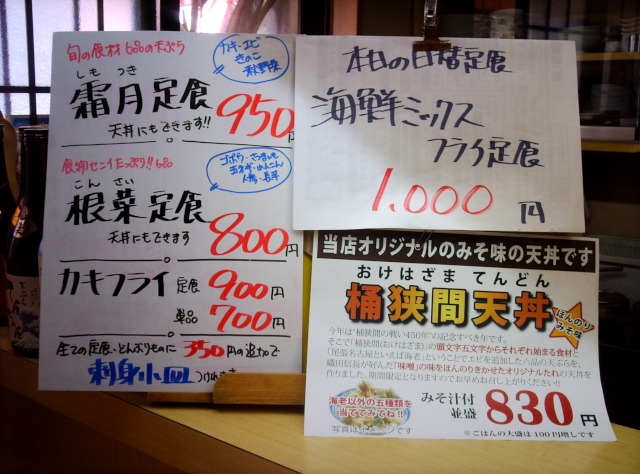 旬の食材 6品の天ぷら
カキ・エビ
きのこ
秋野菜
しもつき
霜月定食
950円
天丼にもできます!!
食物センイたっぷり!! 6品
ゴボウ・さつまいも
玉ネギ・れんこん
人参・長芋
こんさい
根菜定食
天丼にもできます
800円
カキフライ 定食 900円
単品 700円
全ての定食・どんぶりものに 350円の追加で
刺身小皿 つけれます
本日の日替定食
海鮮ミックス
フライ定食
1,000円
当店オリジナルのみそ味の天丼です
おけはざま てんどん
桶狭間天丼
ほんのり
みそ味
今年は"桶狭間の戦い450年"の記念すべき年です。
そこで「桶狭間(おけはざま)の頭文字五文字からそれぞれ始まる食材と
「尾張名古屋といえば海老」ということでエビを追加した六品の天ぷらを、
織田信長が好んだ「味噌」の味をほんのりきかせたオリジナルたれの天丼を
作りました。期間限定となりますのでお早めお召し上がりください!!
海老以外の五種類を
当ててみてね!!
写真はイメージです
みそ汁付
並盛 830円
※ごはんの大盛は100円増しです